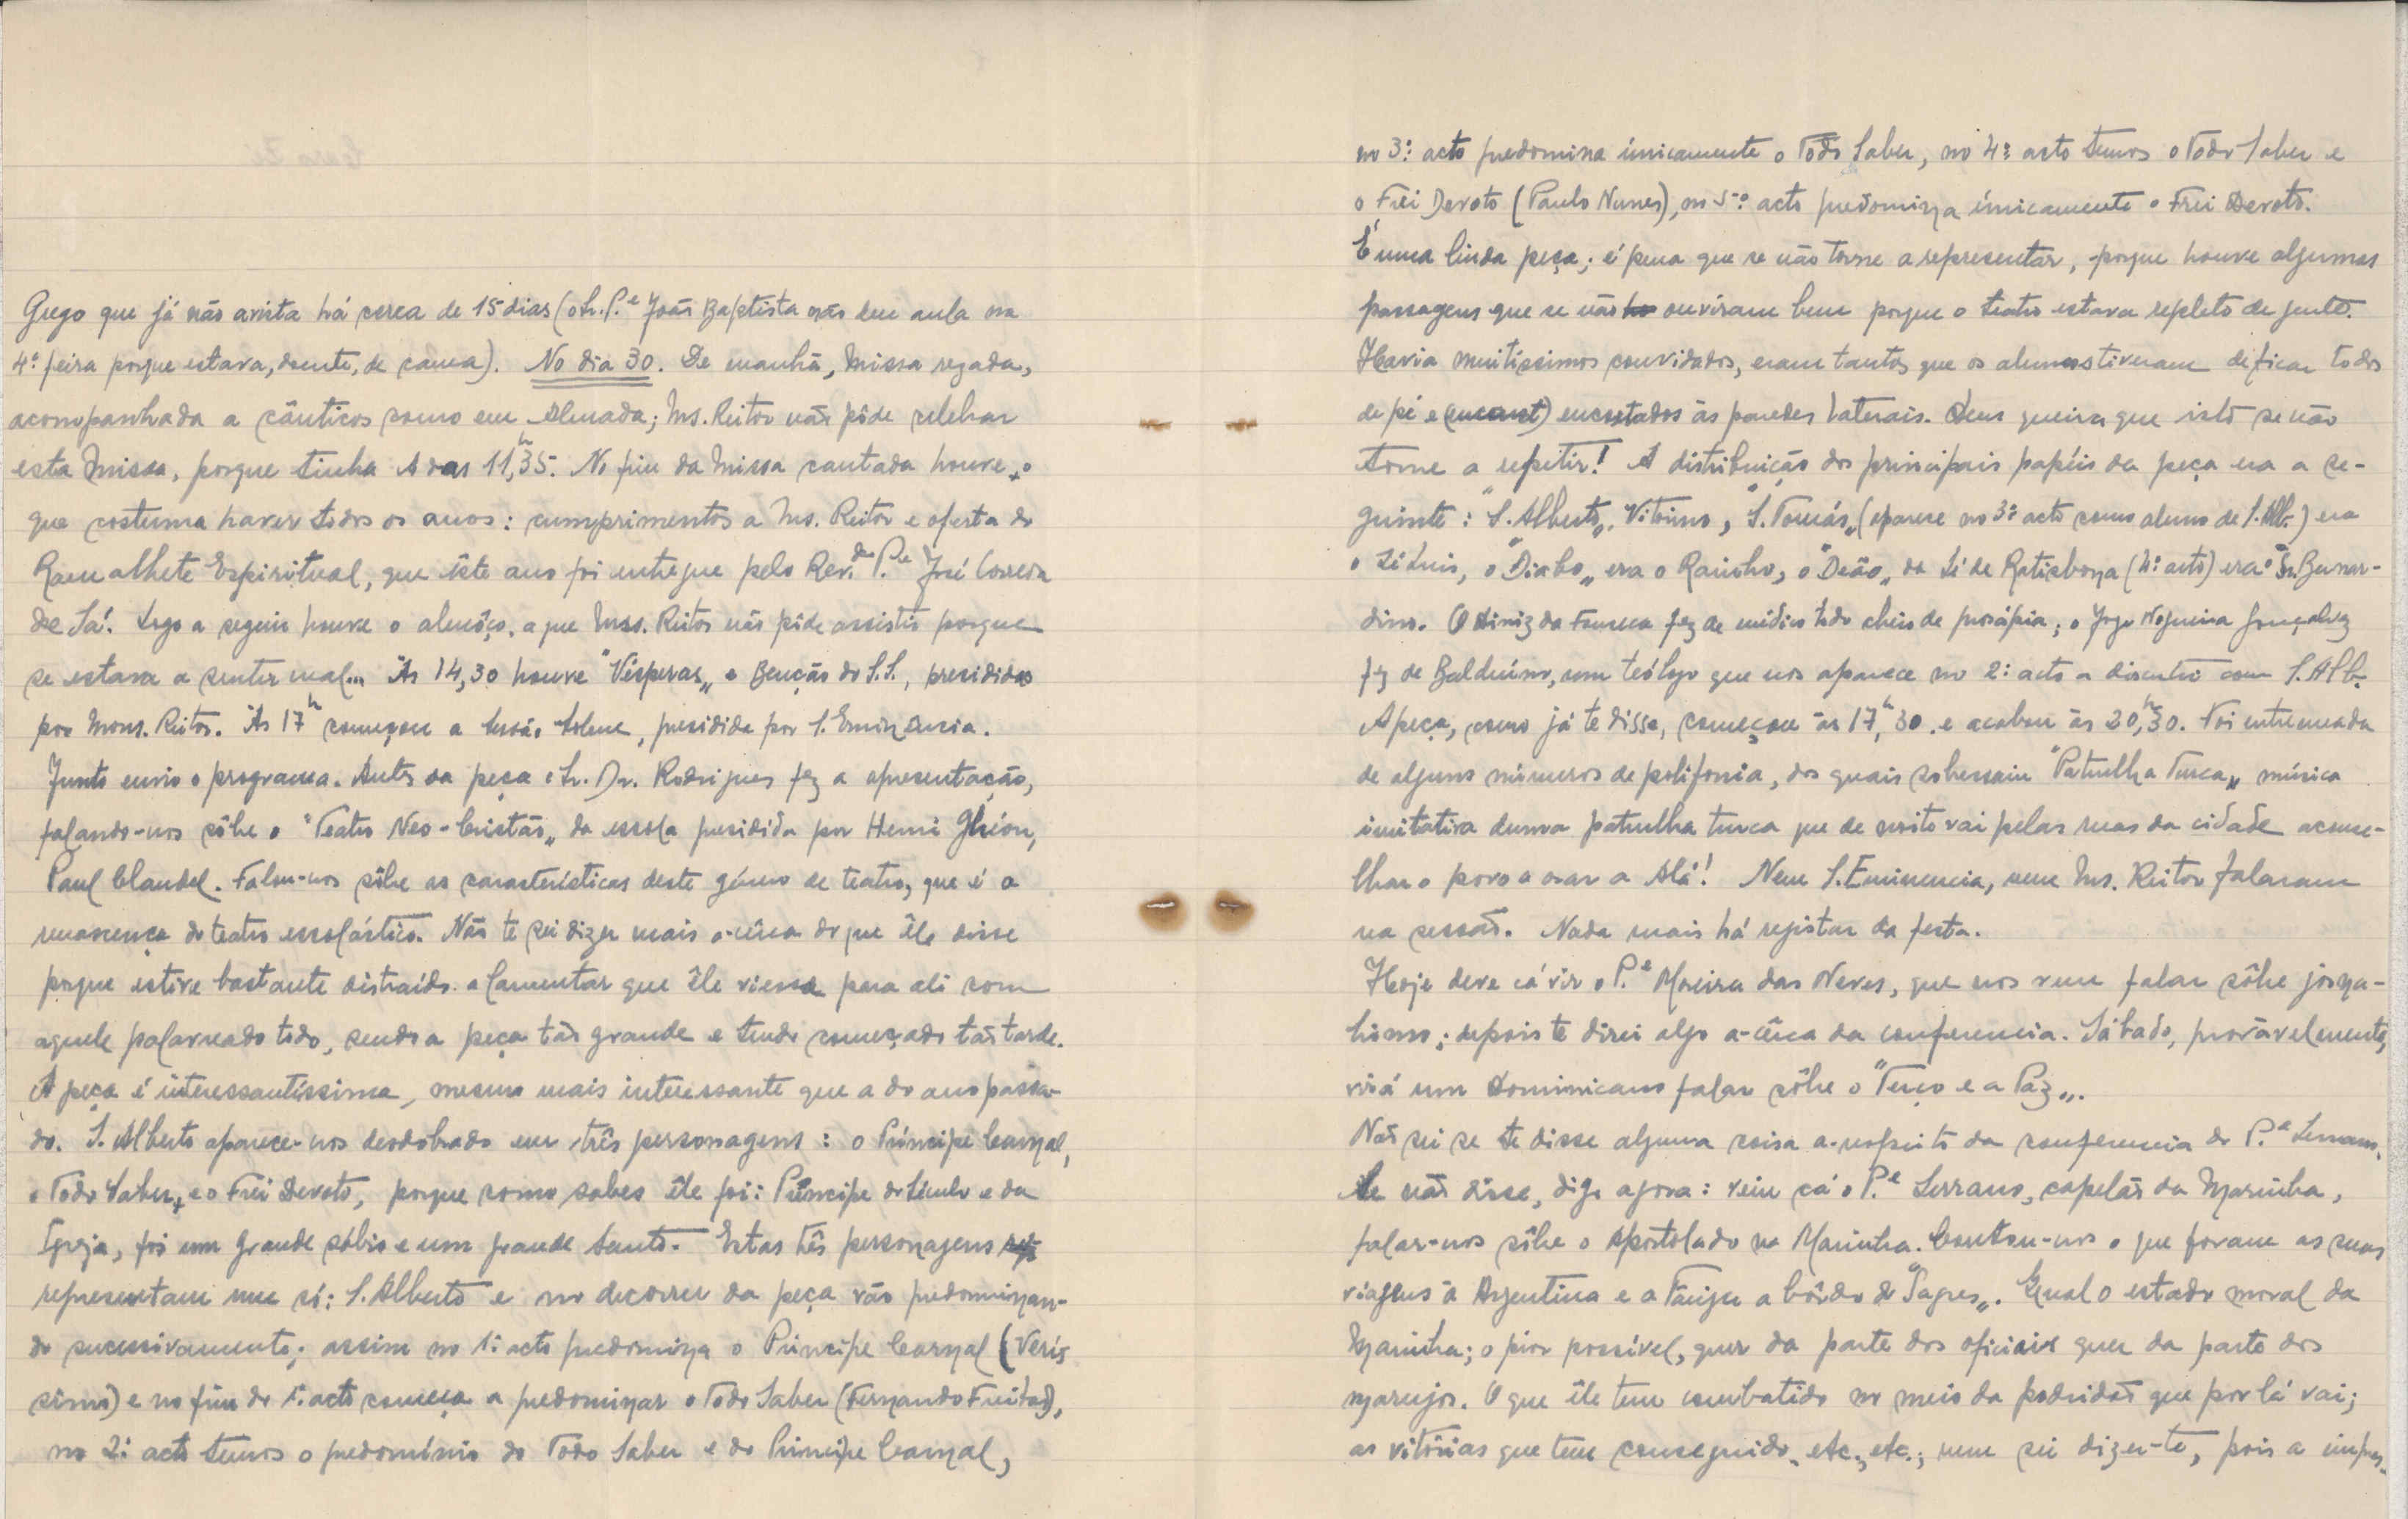 Grego que já não avista há cerca de 15 dias (o Sr. P.e João Baptista não deu aula na
4.ª feira porque estava, doente, de cama). No dia 30. De manhã, Missa rezada,
acompanhada a cânticos como em Almada; Mns. Reitor não pôde celebrar
esta Missa, porque tinha A das 11,h35. No fim da Missa cantada houve o
que costuma haver todos os anos: cumprimentos a Mns. Reitor e oferta do
Ramalhete Espiritual, que êste ano foi entregue pelo Rev.do P.e José Correia
de Sá. Logo a seguir houve o almôço, a que Mns. Reitor não pôde assistir porque
se estava a sentir mal... Às 14,30 houve "Vésperas„ e Benção do S.S., presididas
por Mons. Reitor. Às 17h começou a Sessão Solene, presidida por S. Eminencia.
Junto envio o programa. Antes da peça o Sr. Dr. Rodrigues fez a apresentação,
falando-nos sôbre o "Teatro Neo-Cristão„ da escola presidida por Henri Ghéon,
Paul Claudel. Falou-nos sôbre as características deste género de teatro, que é a
renascença do teatro escolástico. Não te sei dizer mais a-cêrca do que êle disse
porque estive bastante distraído a lamentar que êle viesse para ali com
aquele palavreado todo, sendo a peça tão grande e tendo começado tão tarde.
A peça é interessantíssima, mesmo mais interessante que a do ano passa-
do. S. Alberto aparece-nos desdobrado em três personagens: o Príncipe Carnal,
o Todo Saber, e o Frei Devoto, porque como sabes êle foi: Príncipe do Século e da
Igreja, foi um grande sábio e um grande Santo. Estas três personagens
representam um só: S. Alberto e no decorrer da peça vão predominan-
do sucessivamente; assim no 1.º acto predomina o Príncipe Carnal (Verís
simo) e no fim do 1.º acto começa a predominar o Todo Saber (Fernando Freitas),
no 2.º acto temos o predomínio do Todo Saber e do Príncipe Carnal,
no 3.º acto predomina únicamente o Todo Saber, no 4.º acto temos o Todo Saber e
o Frei Devoto (Paulo Nunes), no 5.º acto predomina únicamente o Frei Devoto.
É uma linda peça; é pena que se não torne a representar, porque houve algumas
passagens que se não ouviram bem porque o teatro estava repleto de gente.
Havia muitíssimos convidados, eram tantos que os alunos tiveram de ficar todos
de pé e (encost) encostados às paredes laterais. Deus queira que isto se não
torne a repetir! A distribuição dos principais papéis da peça era a se-
guinte: "S. Alberto„ Vitorino, "S. Tomás„ (aparece no 3.º acto como aluno de S. Alb.) era
o Zé Luis, o "Diabo„ era o Rainho, o "Deão„ da Sé de Ratisbona (4.º acto) era o Sr. Bernar-
dino. O Diniz da Fonseca fez de médico todo cheio de prosápia; o Jorge Nogueira Gonçalvez
fez de Balduíno, um teólogo que nos aparece no 2.º acto a discutir com S. Alb.
A peça, como já te disse, começou às 17,h30 e acabou às 20,h30. Foi entremeada
de alguns números de polifonia, dos quais sobressaiu "Patrulha Turca„ música
imitativa duma patrulha turca que de noite vai pelas ruas da cidade aconse-
lhar o povo a orar a Alá! Nem S. Eminencia, nem Mns. Reitor falaram
na sessão. Nada mais há registar da festa.
Hoje deve cá vir o P.e Moreira das Neves, que nos vem falar sôbre jorna-
lismo; depois te direi algo a-cêrca da conferencia. Sábado, provàvelmente,
virá um Dominicano falar sôbre o "Terço e a Paz„.
Não sei se te disse alguma coisa a-respeito da conferencia do P.e Serrano.
Se não disse, digo agora: veiu cá o P.e Serrano, capelão da Marinha,
falar-nos sôbre o Apostolado na Marinha. Contou-nos o que foram as suas
viagens à Argentina e a Tânger a bôrdo do "Sagres„. Qual o estado moral da
Marinha; o pior possível, quer da parte dos oficiais quer da parte dos
marujos. O que êle tem combatido no meio da podridão que por lá vai;
as vitórias que tem conseguido, etc., etc.; nem sei dizer-te, pois a impres-